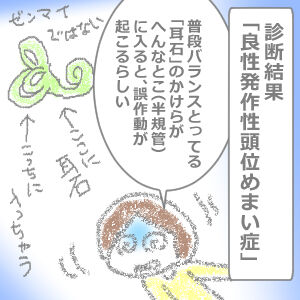 診断結果
「良性発作性頭位めまい症」
普段バランスとってる
「耳石」のかけらが
へんなとこ(半規管)
に入ると、誤作動が
起こるらしい
ゼンマイ
ではない
ここに
耳石
こっちに
入っちゃう